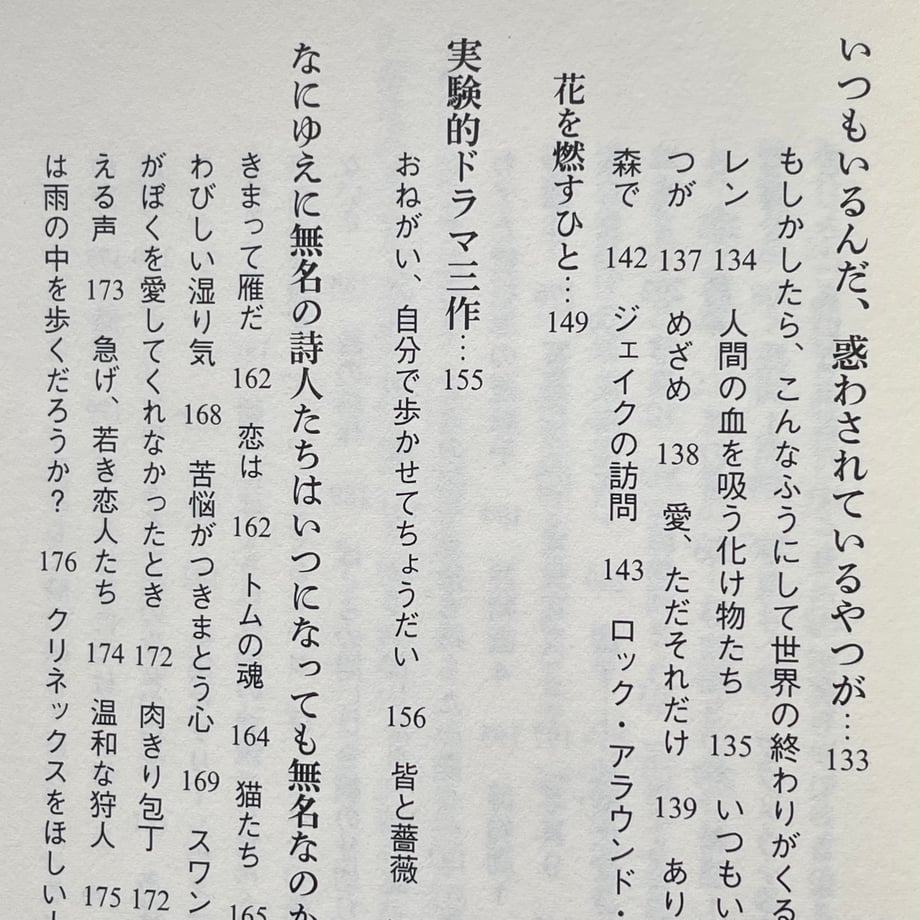 いつもいるんだ、惑わされているやつが…133
もしかしたら、こんなふうにして世界の終わりがくる
レン 134 人間の血を吸う化け物たち 135 いつもい
つが 137 めざめ 138 愛、ただそれだけ 139 あり
森で 142 ジェイクの訪問 143 ロック・アラウンド・
花を燃すひと…149
実験的ドラマ三作…155
おねがい、自分で歩かせてちょうだい 156 皆と薔薇
なにゆえに無名の詩人たちはいつになっても無名なのか
きまって雁だ 162 恋は 162 トムの魂 164 猫たち 165
わびしい湿り気 168 苦悩がつきまとう心 169 スワン
がぼくを愛してくれなかったとき 172 肉きり包丁 172
える声 173 急げ、若き恋人たち 174 温和な狩人 175
は雨の中を歩くだろうか？ 176 クリネックスをほしい